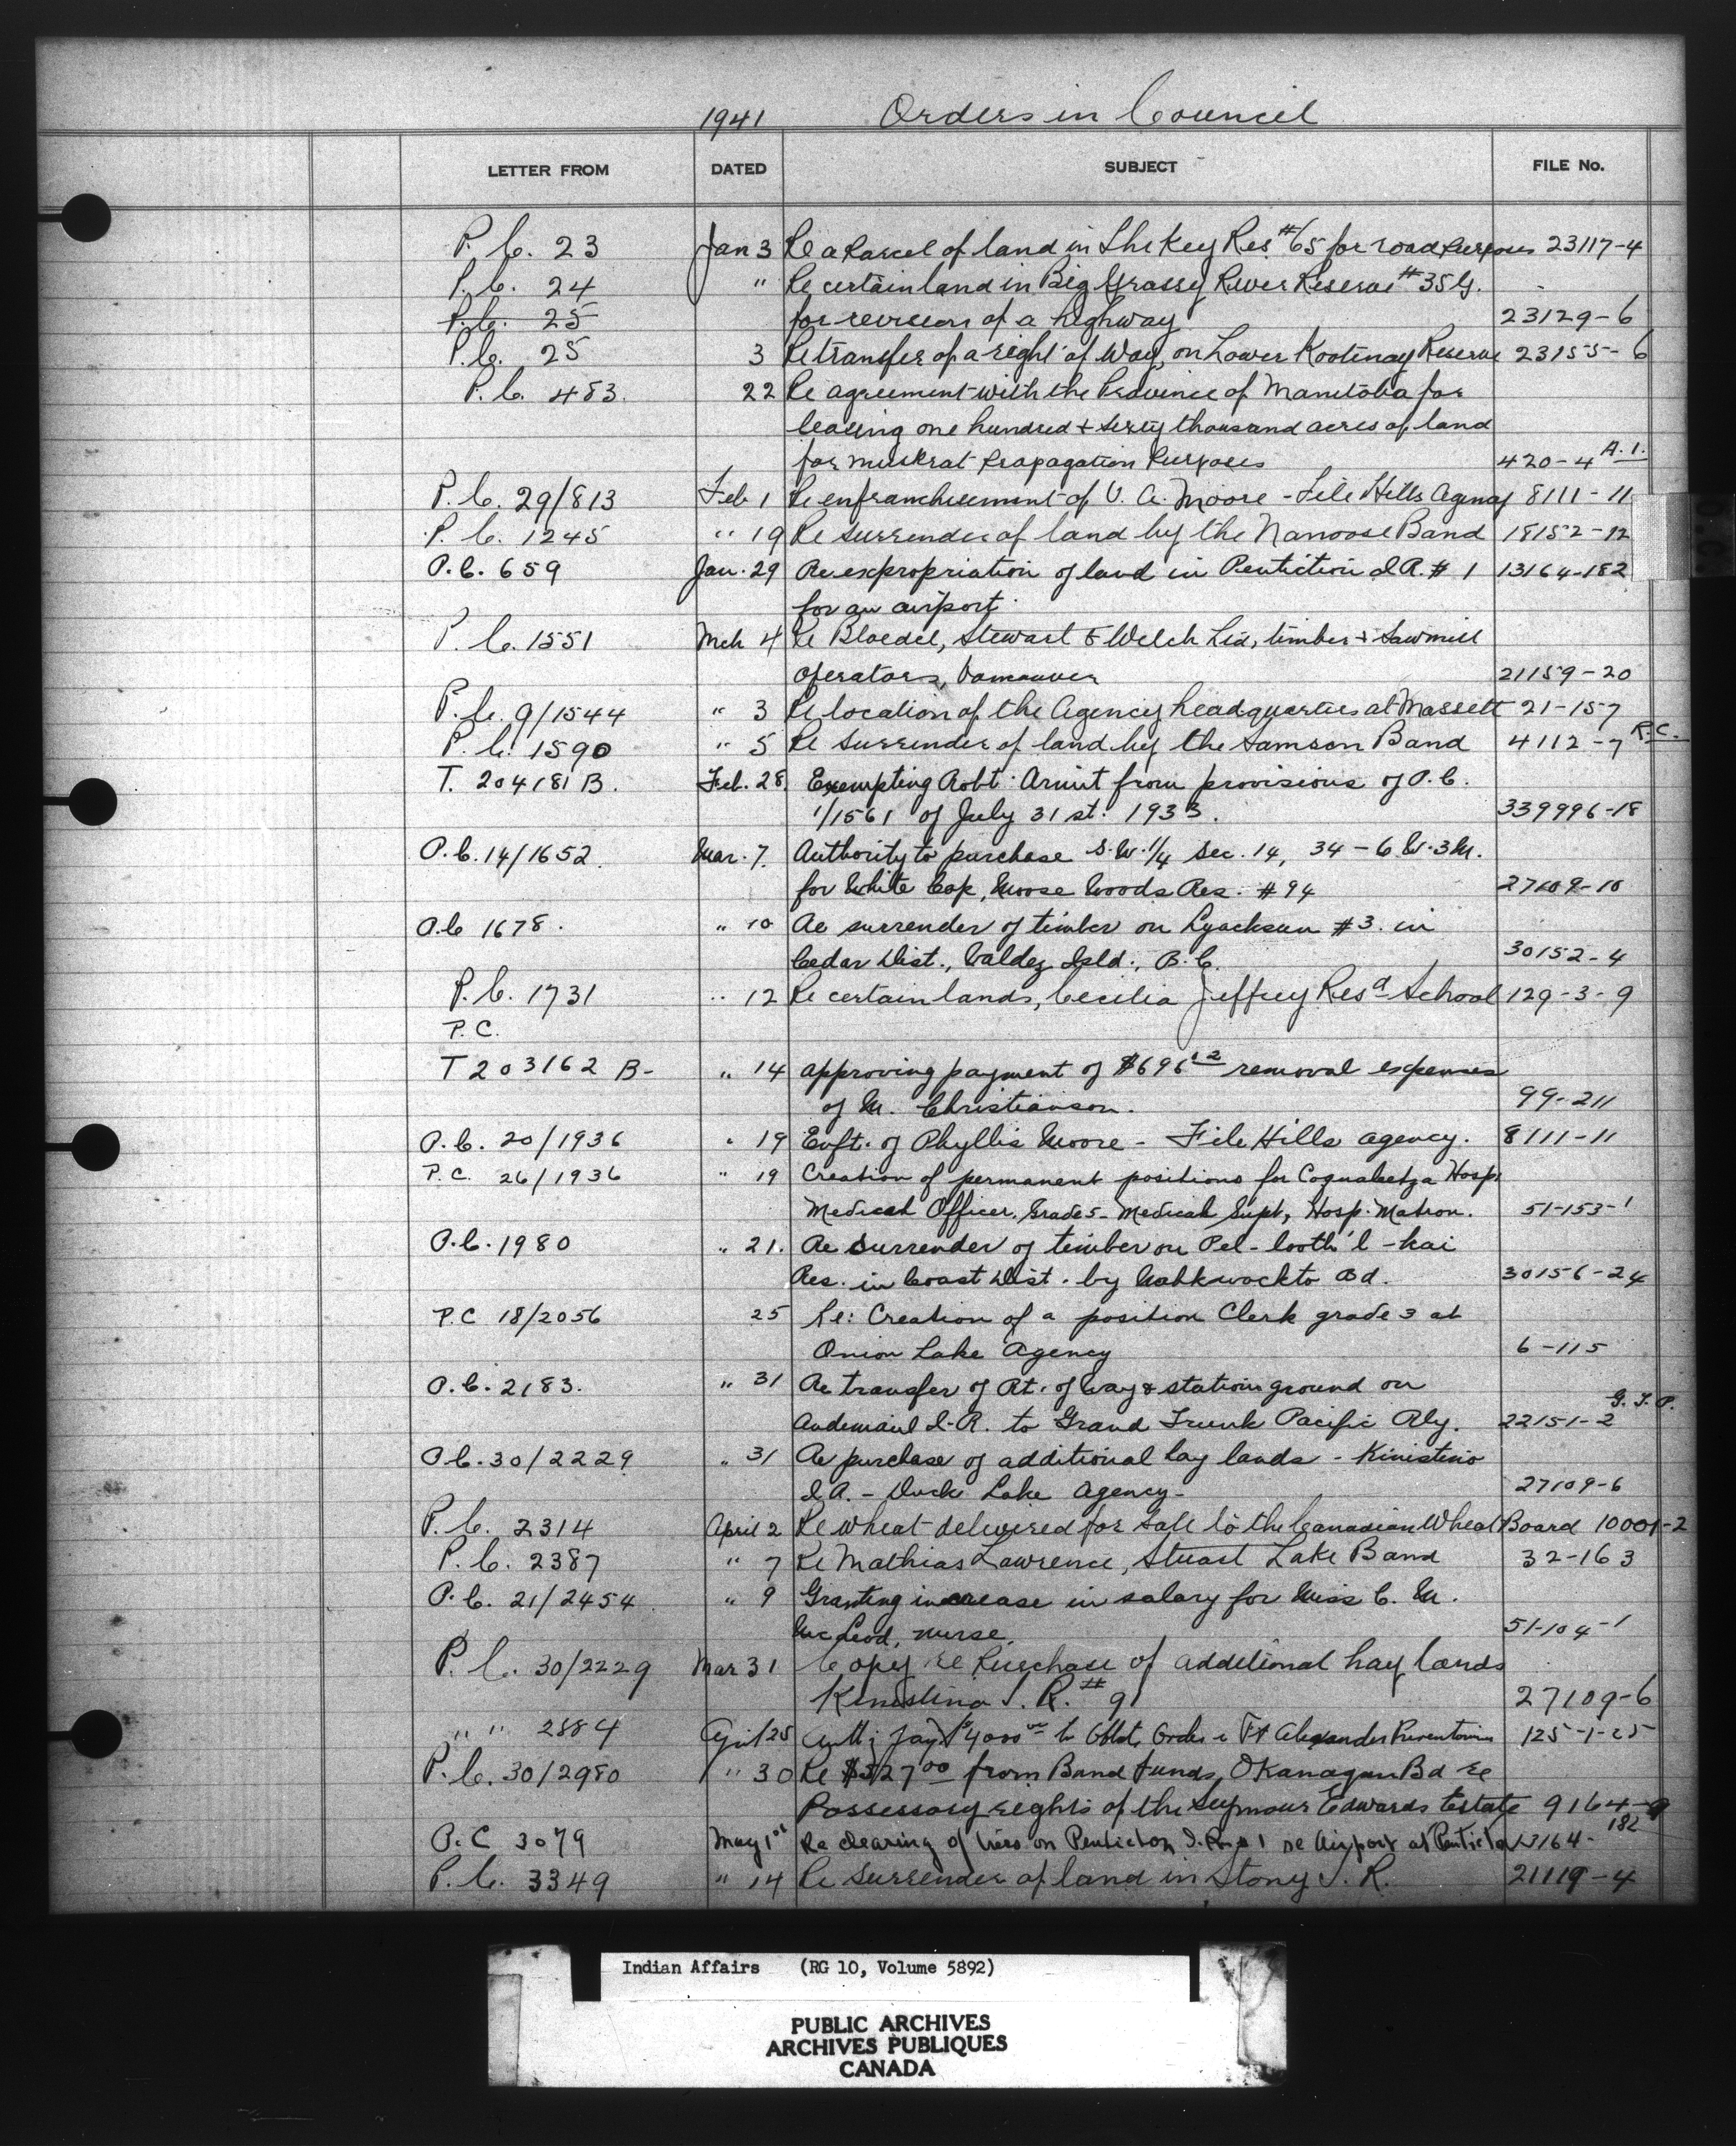 1941 Orders in Council
LETTER FROM DATED SUBJECT FILE No.
P.C. 23 Jan 3 Re a Parcel of land in The Key Res #65 for road purposes 23117-4
P.C. 24 " Re certain land in Big Grassy River Reserve #35G.
P.C. 25 for revision of a highway 23129-6
P.C. 25 3 Re transfer of a right of Way, on Lower Kootenay Reserve 23155-6
P.C. 483. 22 Re agreement with the Province of Manitoba for
leasing one hundred & sixty thousand acres of land
for muskrat Propagation Purposes 420-4 A.1.
P.C. 29/813 Feb 1 Re enfranchisement of V. A. Moore - File Hills Agency 8111-11
P.C. 1245 " 19 Re surrender of land by the Nanoose Band 18152-12
P.C. 659 Jan. 29 Re expropriation of land in Pentiction I.R. #1 13164-182
for an airport.
P.C. 1551 Mch 4 Re Bloedel, Stewart & Welch Ltd, timber & Sawmill
Operators, Vancouver 21159-20
P.C. 9/1544 " 3 Re location of the Agency headquarters at Massett 21-157
P.C. 1590 " 5 Re surrender of land by the Samson Band 4112-7 R.C.
T. 204181 B. Feb. 28. Exempting Robt. from provisions of P.C.
1/1561 of July 31st. 1933. 339996-18
P.C. 14/1652. Mar. 7. Authority to purchase S.W. 1/4 Sec. 14, 34-6 W. 3M.
for White Cap, Moose Woods Res. #94 27109-10
P.C 1678. " 10 Re surrender of timber on Lyacksun #3. in
Cedar Dist., Valdez Isld., B.C. 30152-4
P.C. 1731 " 12 Re certain lands, Cecilia Jeffrey Resd School 129-3-9
P.C.
T 203162 B- " 14 approving payment of $696 12 removal expenses
of M. Christianson. 99-211
P.C. 20/1936 " 19 Enft. of Phyllis Moore - File Hills agency. 8111-11
P.C. 26/1936 " 19 Creation of permanent positions for Coqualeetza Hosp.
Medical Officer. Grade 5 - Medical Supt, Hosp. Matron. 51-153-1
P.C. 1980 " 21. Re Surrender of timber on Pel-looth'l-kai
Res. in Coast Dist. by Bd. 30156-24
P.C 18/2056 25 Re: Creation of a position Clerk grade 3 at
Onion Lake Agency 6-115
P.C. 2183. " 31 Re transfer of Rt. of way & station ground on
Andemaul I.R. to Grand Trunk Pacific Rly. 22151-2 G.T.P.
P.C. 30/2229 " 31 Re purchase of additional hay lands - Kinistino
I.R. - Duck Lake Agency - 27109-6
P.C. 2314 April 2 Re wheat delivered for Sale to the Canadian Wheat Board 10001-2
P.C. 2387 " 7 Re Mathias Lawrence, Stuart Lake Band 32-163
P.C. 21/2454 " 9 Granting increase in salary for Miss C. M.
McLeod, nurse. 51-104-1
P.C. 30/2229 Mar 31 Copy re Purchase of additional hay lands
Kinistino I.R. #91 27109-6
" " 2884 April 25 $4000 Ft Alexander 125-1-25
P.C. 30/2980 " 30 Re $527 00 from Band funds, OKanagan Bd re
Possessory rights of the Seymour Edwards Estate 9164-9
P.C 3079 May 1st Re clearing of trees on Penticton I.R. #1 re Airport at Penticton 13164-182
P.C. 3349 " 14 Re surrender of land in Stony I.R. 21119-4
Indian Affairs (RG 10, Volume 5892)
PUBLIC ARCHIVES
ARCHIVES PUBLIQUES
CANADA